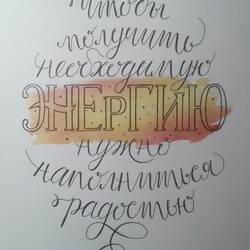 чтобы
получить
необходимую
ЭНЕРГИЮ
нужно
наполниться
радостью